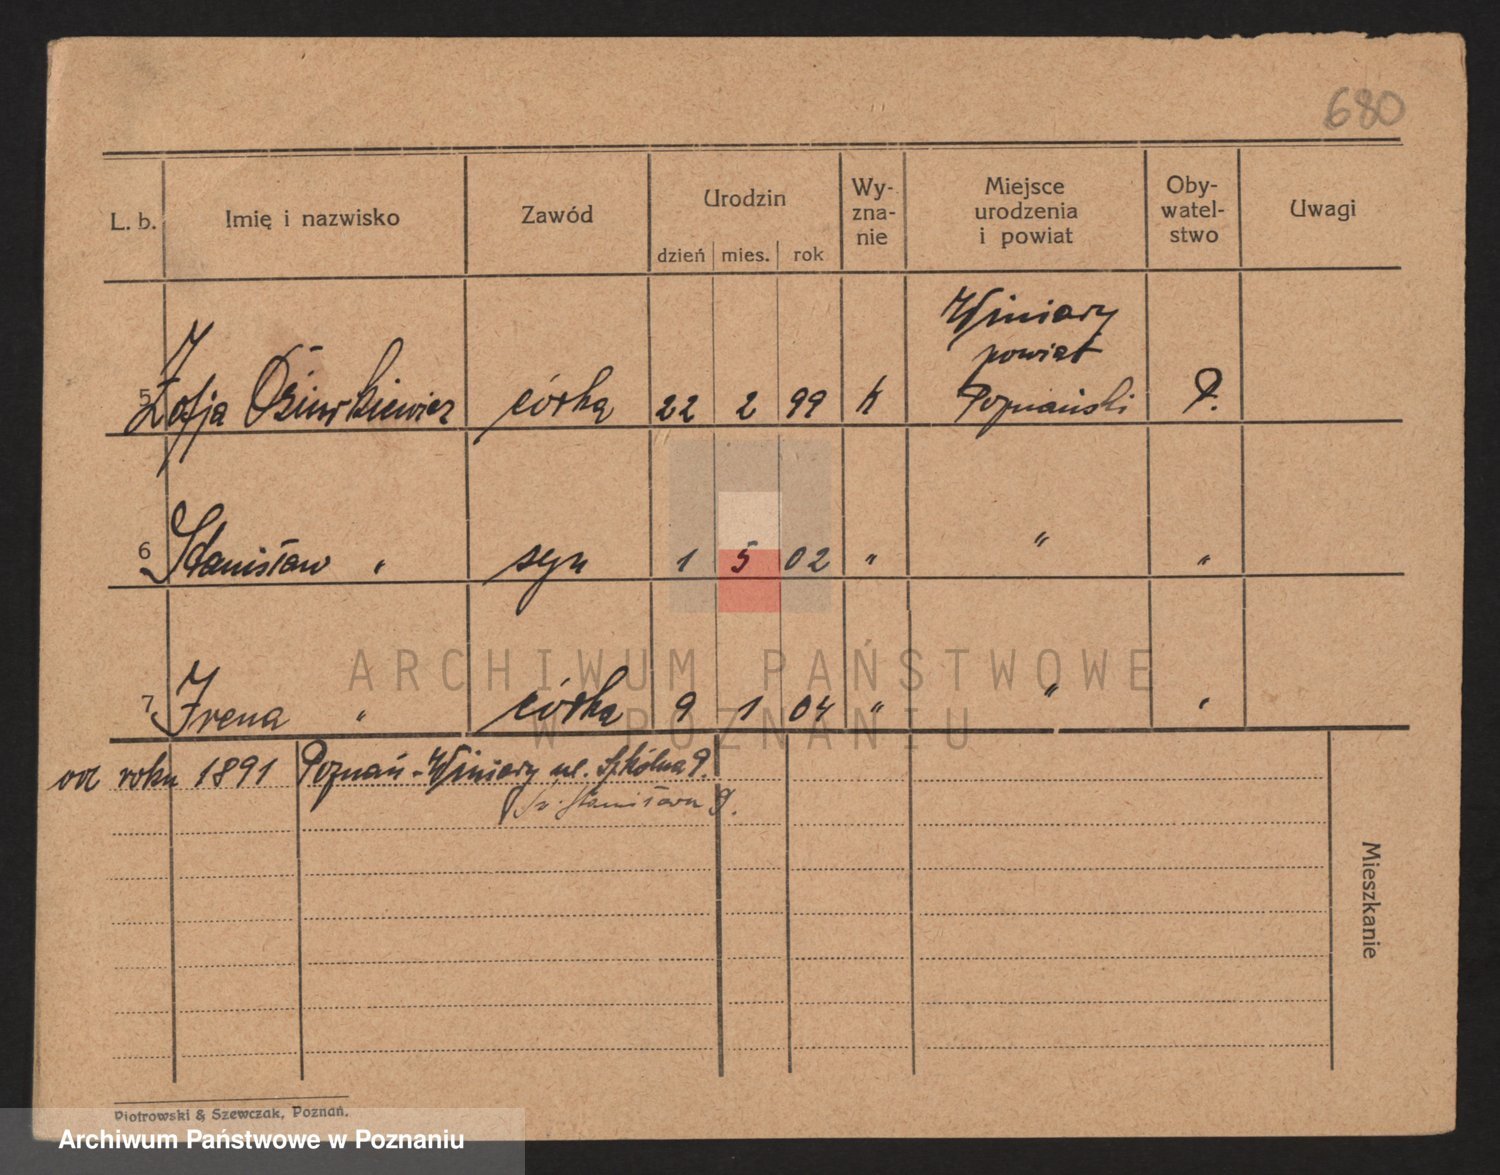 680
L. b. Imię i nazwisko Zawód Urodzin dzień mies. rok Wy-zna-nie Miejsce urodzenia i powiat Oby-watel-stwo Uwagi
Winiary
powiat
5 Zofja córka 22 2 99 k Poznański P.
6 Stanisław " syn 1 5 02 " " "
7 Irena " córka 9 1 04 " " "
ARCHIWUM PAŃSTWOWE
W POZNANIU
od roku 1891 Poznań-Winiary ul. Szkólna 9.
Św. Stanisława 9.
Mieszkanie
Piotrowski & Szewczak, Poznań.
Archiwum Państwowe w Poznaniu